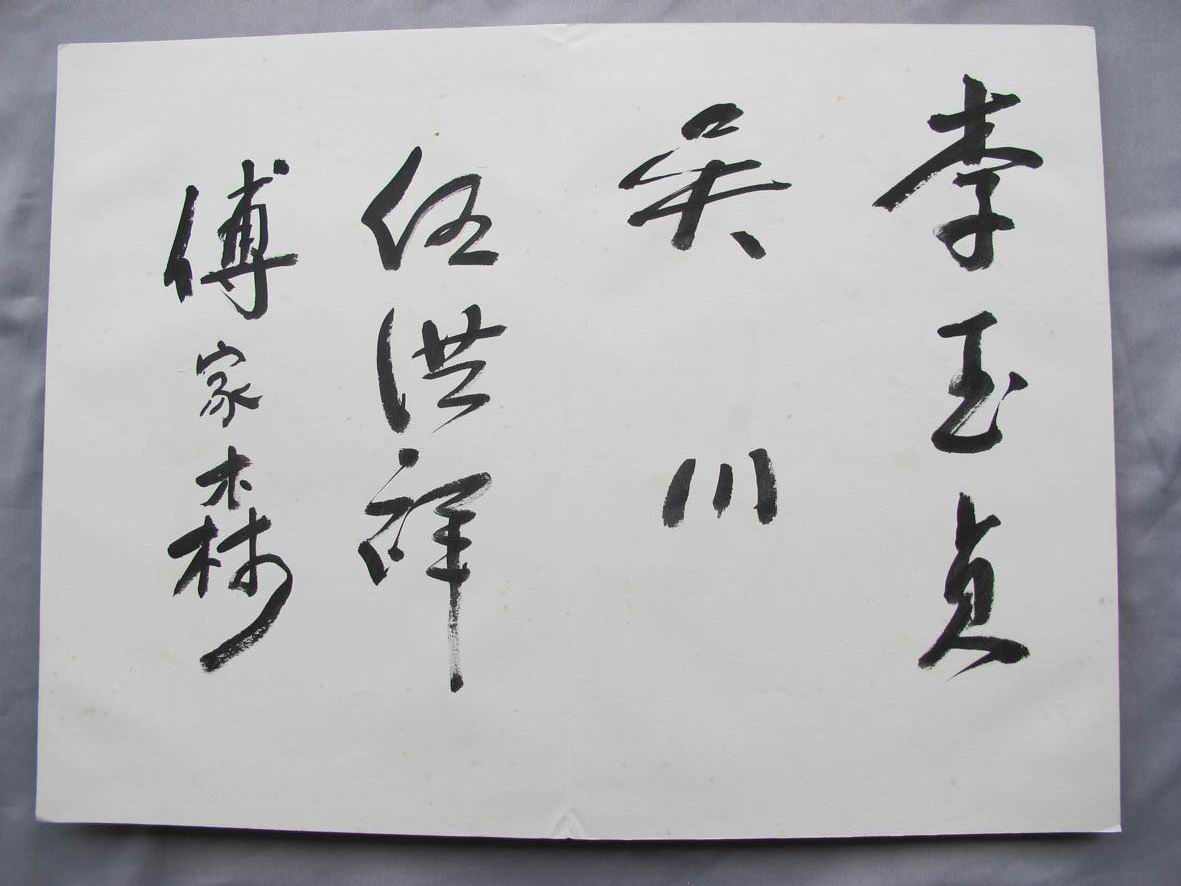 李玉贞
吴川
伍洪祥
傅家森